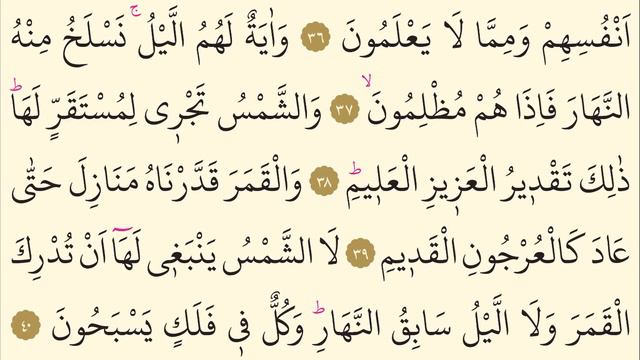 اَنْفُسِهِمْ وَمِمَّا لَا يَعْلَمُونَ ﴿٣٦﴾ وَاٰيَةٌ لَهُمُ الَّيْلُۚ نَسْلَخُ مِنْهُ
النَّهَارَ فَاِذَا هُمْ مُظْلِمُونَۙ ﴿٣٧﴾ وَالشَّمْسُ تَجْر۪ي لِمُسْتَقَرٍّ لَهَاۜ
ذٰلِكَ تَقْد۪يرُ الْعَز۪يزِ الْعَل۪يمِۜ ﴿٣٨﴾ وَالْقَمَرَ قَدَّرْنَاهُ مَنَازِلَ حَتّٰى
عَادَ كَالْعُرْجُونِ الْقَد۪يمِ ﴿٣٩﴾ لَا الشَّمْسُ يَنْبَغ۪ي لَهَٓا اَنْ تُدْرِكَ
الْقَمَرَ وَلَا الَّيْلُ سَابِقُ النَّهَارِۜ وَكُلٌّ ف۪ي فَلَكٍ يَسْبَحُونَ ﴿٤٠﴾